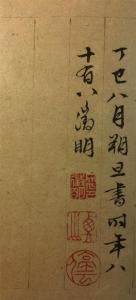 丁巳八月朔旦書時年八
十有八徵明